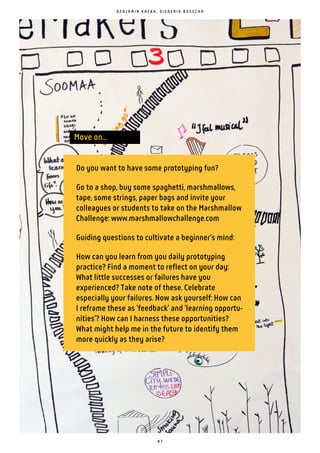 BENJAMIN KAFKA, DIEDERIK BOSSCHA
eMakers
3
SOOMAA
"I feel musical"
Move on...
What a
learn
from
life"
How are
you
Do you want to have some prototyping fun?
Go to a shop, buy some spaghetti, marshmallows,
tape, some strings, paper bags and invite your
colleagues or students to take on the Marshmallow
Challenge: www.marshmallowchallenge.com
Guiding questions to cultivate a beginner's mind:
How can you learn from your daily prototyping
practice? Find a moment to reflect on your day:
What little successes or failures have you
experienced? Take note of these. Celebrate
especially your failures. Now ask yourself: How can
I reframe these as 'feedback' and 'learning opportu-
nities'? How can I harness these opportunities?
What might help me in the future to identify them
more quickly as they arise?
SIMPLI
CITY, WILDE
the light
87